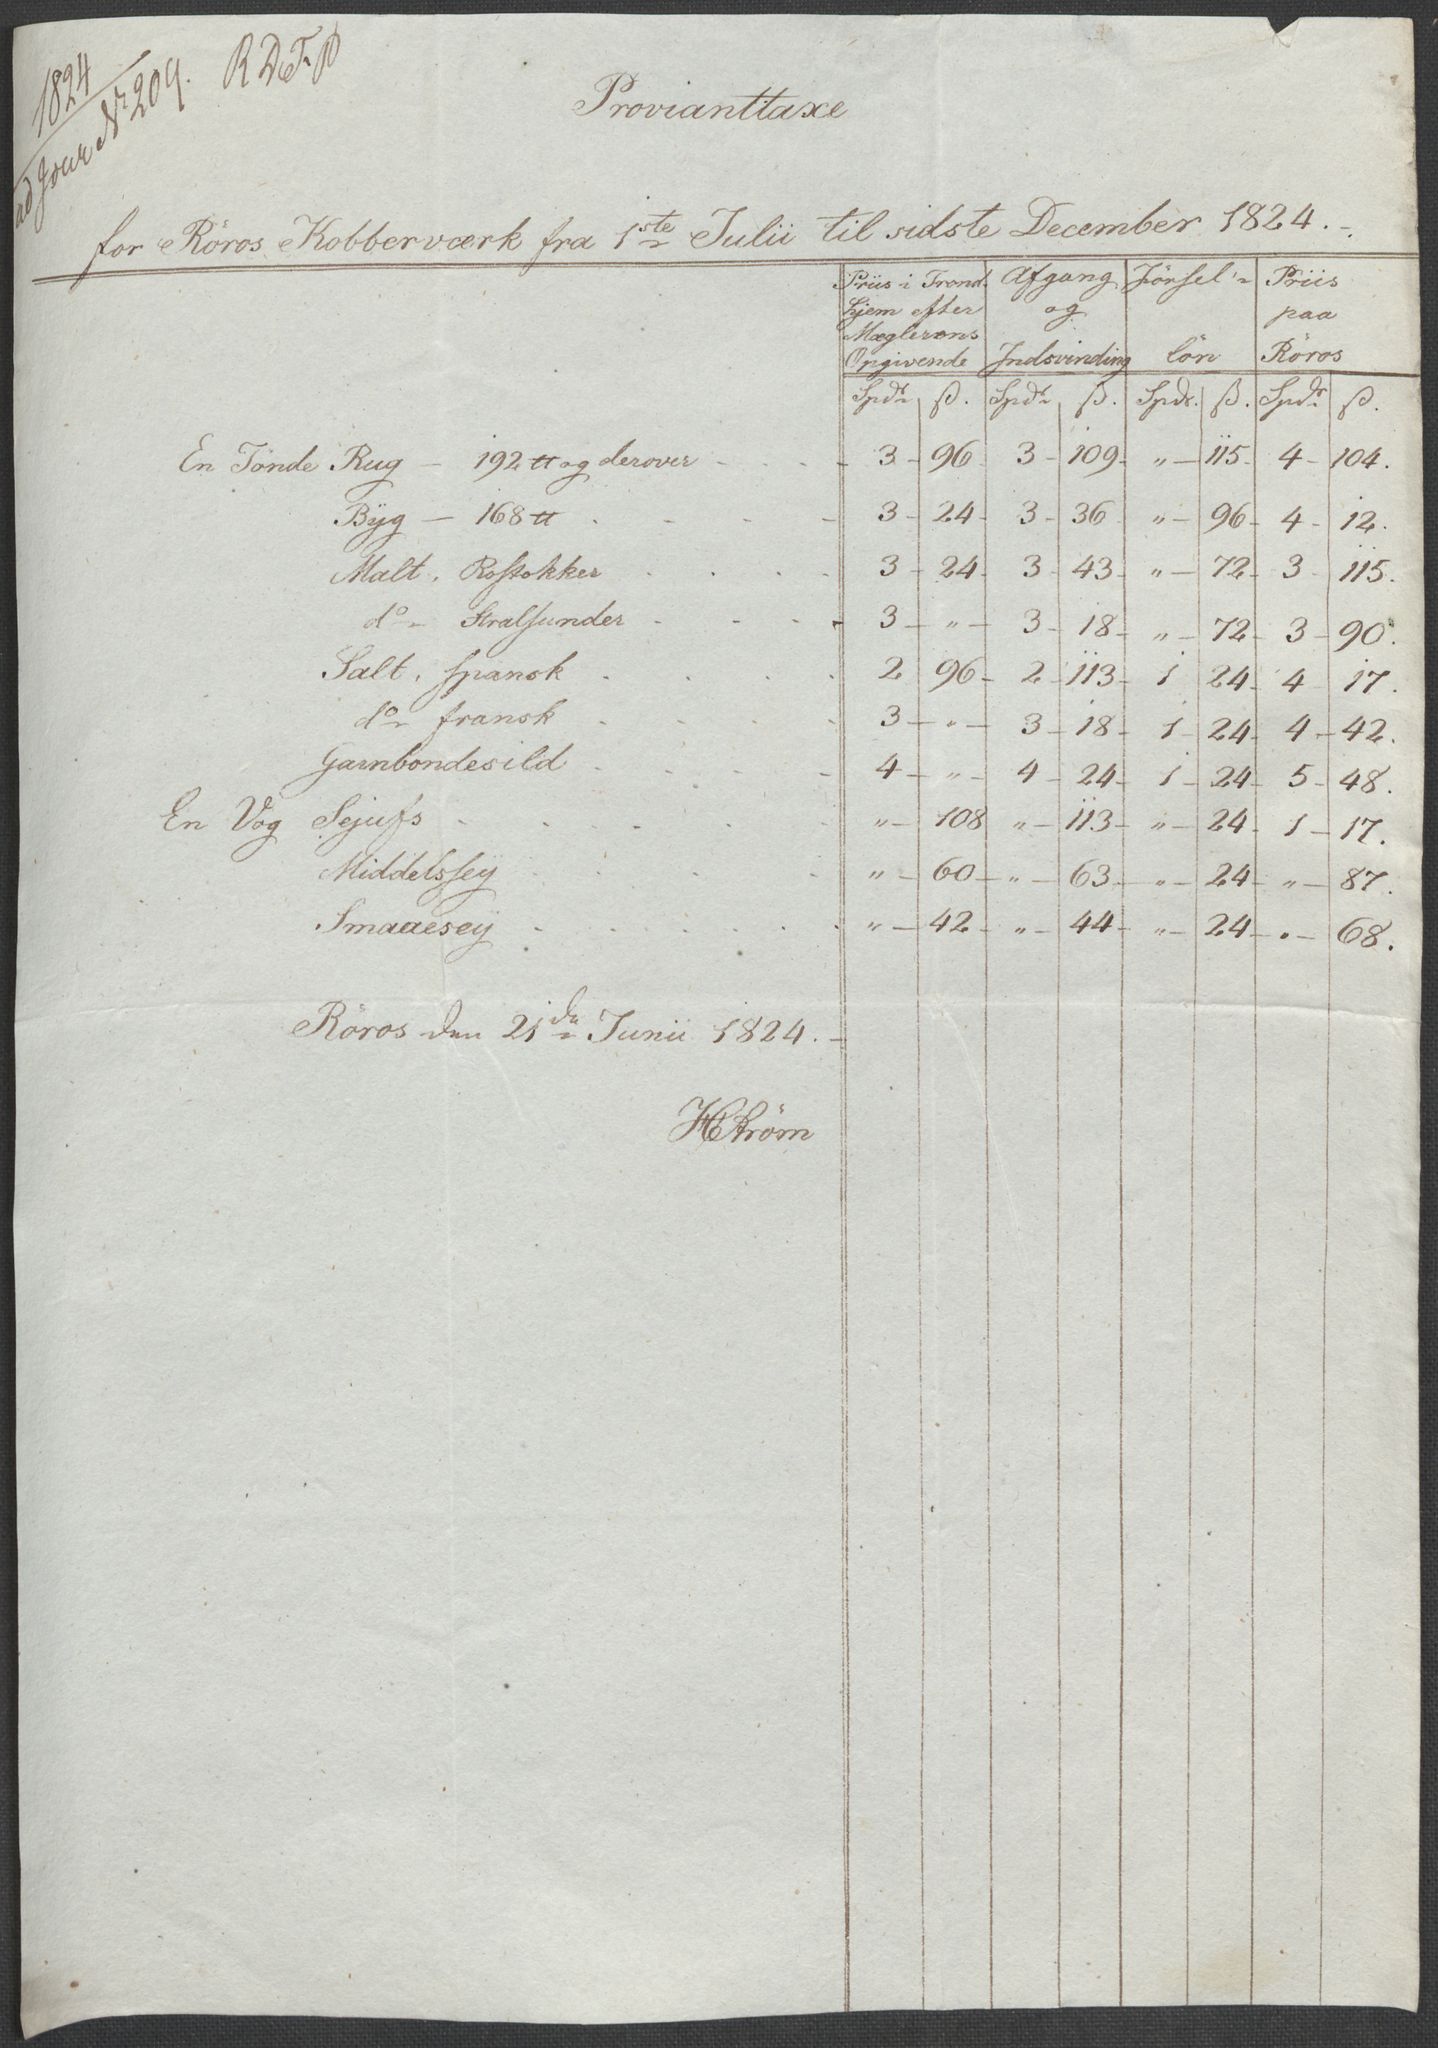 1824
ad Jour Nr 209. R D T P
Provianttaxe
for Röros Kobberværk fra 1ste Julii til sidste December 1824.
Priis i Trond- Afgang Förſel- Priis
hjem efter og paa
Mæglerens
Opgivende Indsvinding lön Röros
Spdr ß. Spdr ß. Spdr. ß. Spdr ß.
En Tönde Rug - 192 tt og derover 3 96 3 109 " 115 4 104.
Byg - 168 tt 3 24 3 36 " 96 4 12.
Malt, Roſtokker 3 24 3 43 " 72 3 115.
do Stralſunder 3 " 3 18 " 72 3 90.
Salt, ſpansk 2 96 2 113 1 24 4 17.
do fransk 3 " 3 18 1 24 4 42.
Garnbondesild 4 " 4 24 1 24 5 48.
En Vog Sejufs " 108 " 113 " 24 1 17.
Middelsſey " 60 " 63 " 24 " 87.
Smaaesey " 42 " 44 " 24 " 68.
Röros den 21de Junii 1824.
HStröm